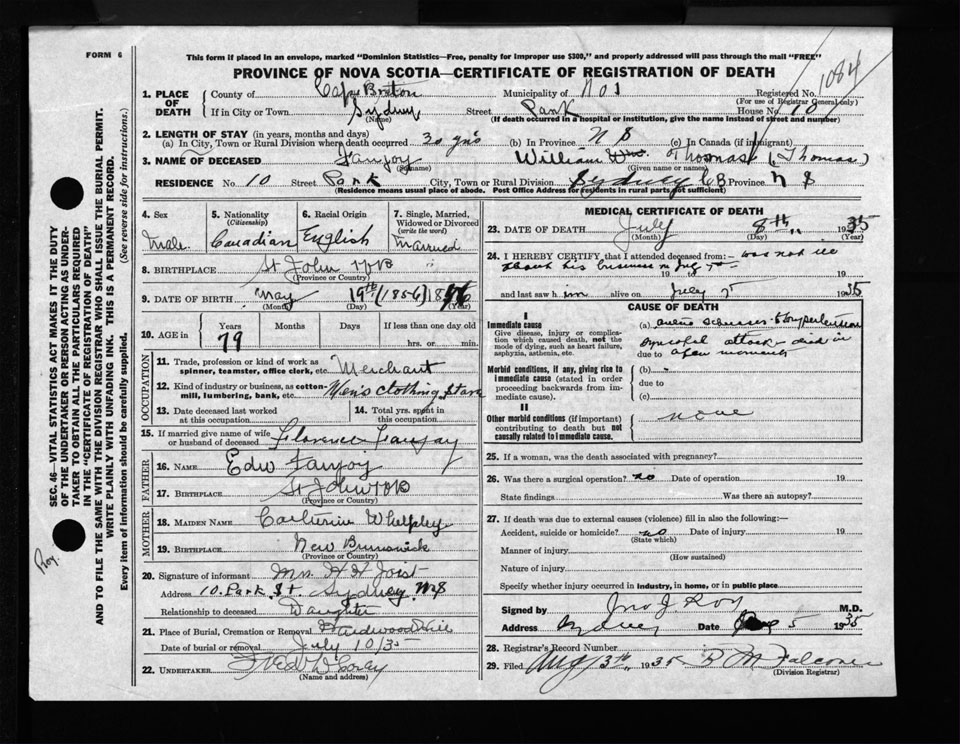 FORM 6
This form if placed in an envelope, marked "Dominion Statistics—Free, penalty for improper use $300," and properly addressed will pass through the mail "FREE"
1084
PROVINCE OF NOVA SCOTIA—CERTIFICATE OF REGISTRATION OF DEATH
1. PLACE OF DEATH
County of Cape Breton Municipality of No 1 Registered No.
(For use of Registrar General only)
If in City or Town Sydney Street Park House No. 10
(Name) (If death occurred in a hospital or institution, give the name instead of street and number)
2. LENGTH OF STAY (in years, months and days)
(a) In City, Town or Rural Division where death occurred 30 yrs (b) In Province N S (c) In Canada (if immigrant)
3. NAME OF DECEASED Fanjoy William Thomas (Thomas)
(Surname) (Given name or names)
RESIDENCE No 10 Street Park City, Town or Rural Division Sydney C B Province N S
(Residence means usual place of abode. Post Office Address for residents in rural parts not sufficient)
4. Sex Male
5. Nationality (Citizenship) Canadian
6. Racial Origin English
7. Single, Married, Widowed or Divorced (write the word) Married
8. BIRTHPLACE St John N B
(Province or Country)
9. DATE OF BIRTH May 19th (1856) 1856
(Month) (Day) (Year)
10. AGE in Years 79 Months Days If less than one day old
hrs. or min.
OCCUPATION
11. Trade, profession or kind of work as spinner, teamster, office clerk, etc. Merchant
12. Kind of industry or business, as cotton-mill, lumbering, bank, etc. Men's clothing Store
13. Date deceased last worked at this occupation
14. Total yrs. spent in this occupation
15. If married give name of wife or husband of deceased Florence Fanjoy
FATHER
16. NAME Edw Fanjoy
17. BIRTHPLACE St John N B
(Province or Country)
MOTHER
18. MAIDEN NAME Catherine Whelpley
19. BIRTHPLACE New Brunswick
(Province or Country)
20. Signature of informant Mrs H H Jost
Address 10 Park St. Sydney N S
Relationship to deceased Daughter
21. Place of Burial, Cremation or Removal Hardwood Hill
Date of burial or removal July 10/35
22. UNDERTAKER
(Name and address)
MEDICAL CERTIFICATE OF DEATH
23. DATE OF DEATH July 8th 1935
(Month) (Day) (Year)
24. I HEREBY CERTIFY that I attended deceased from:— was not ill
about his business 19 19
and last saw him alive on July 7 1935
CAUSE OF DEATH
I
Immediate cause
Give disease, injury or complication which caused death, not the mode of dying, such as heart failure, asphyxia, asthenia, etc.
(a)
attack - died in
due to a few moments
Morbid conditions, if any, giving rise to immediate cause (stated in order proceeding backwards from immediate cause).
(b)
due to
(c)
II
Other morbid conditions (if important) contributing to death but not causally related to immediate cause.
none
25. If a woman, was the death associated with pregnancy?
26. Was there a surgical operation? no Date of operation 19
State findings Was there an autopsy?
27. If death was due to external causes (violence) fill in also the following:—
Accident, suicide or homicide? no Date of injury 19
(State which)
Manner of injury
(How sustained)
Nature of injury
Specify whether injury occurred in industry, in home, or in public place
Signed by Jno J Roy M.D.
Address Sydney Date 5 1935
28. Registrar's Record Number
29. Filed Aug 13th 1935
(Division Registrar)
SEC. 46—VITAL STATISTICS ACT MAKES IT THE DUTY
OF THE UNDERTAKER OR PERSON ACTING AS UNDER-
TAKER TO OBTAIN ALL THE PARTICULARS REQUIRED
IN THE "CERTIFICATE OF REGISTRATION OF DEATH"
AND TO FILE THE SAME WITH THE DIVISION REGISTRAR WHO SHALL ISSUE THE BURIAL PERMIT.
WRITE PLAINLY WITH UNFADING INK. THIS IS A PERMANENT RECORD.
Every item of information should be carefully supplied. (See reverse side for instructions.)
Roy